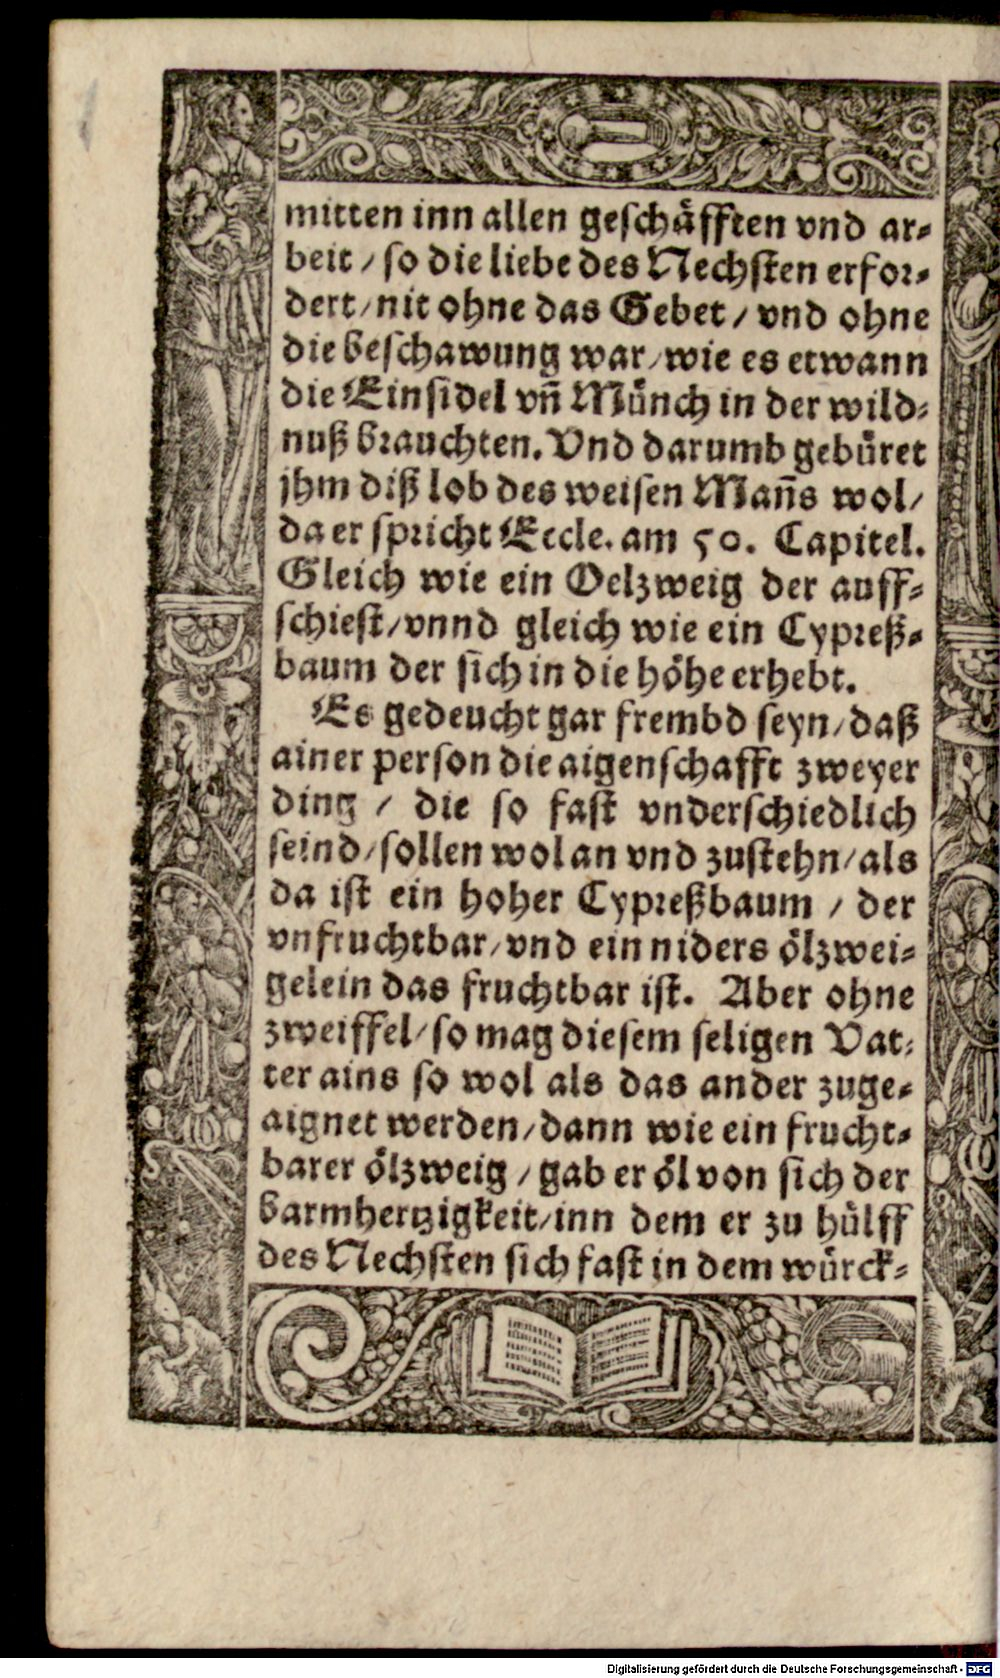 mitten inn allen geschäfften vnd ar-
beit / so die liebe des Nechsten erfor-
dert / nit ohne das Gebet / vnd ohne
die beschawung war / wie es etwann
die Einsidel vñ Münch in der wild-
nuß brauchten. Vnd darumb gebüret
jhm diß lob des weisen Mañs wol /
da er spricht Eccle. am 50. Capitel.
Gleich wie ein Oelzweig der auff-
schiest / vnnd gleich wie ein Cypreß-
baum der sich in die höhe erhebt.
Es gedeucht gar frembd seyn / daß
ainer person die aigenschafft zweyer
ding / die so fast vnderschiedlich
seind / sollen wol an vnd zustehn / als
da ist ein hoher Cypreßbaum / der
vnfruchtbar / vnd ein niders ölzwei-
gelein das fruchtbar ist. Aber ohne
zweiffel / so mag diesem seligen Vat-
ter ains so wol als das ander zuge-
aignet werden / dann wie ein frucht-
barer ölzweig / gab er öl von sich der
barmhertzigkeit / inn dem er zu hülff
des Nechsten sich fast in dem würck-
Digitalisierung gefördert durch die Deutsche Forschungsgemeinschaft - DFG